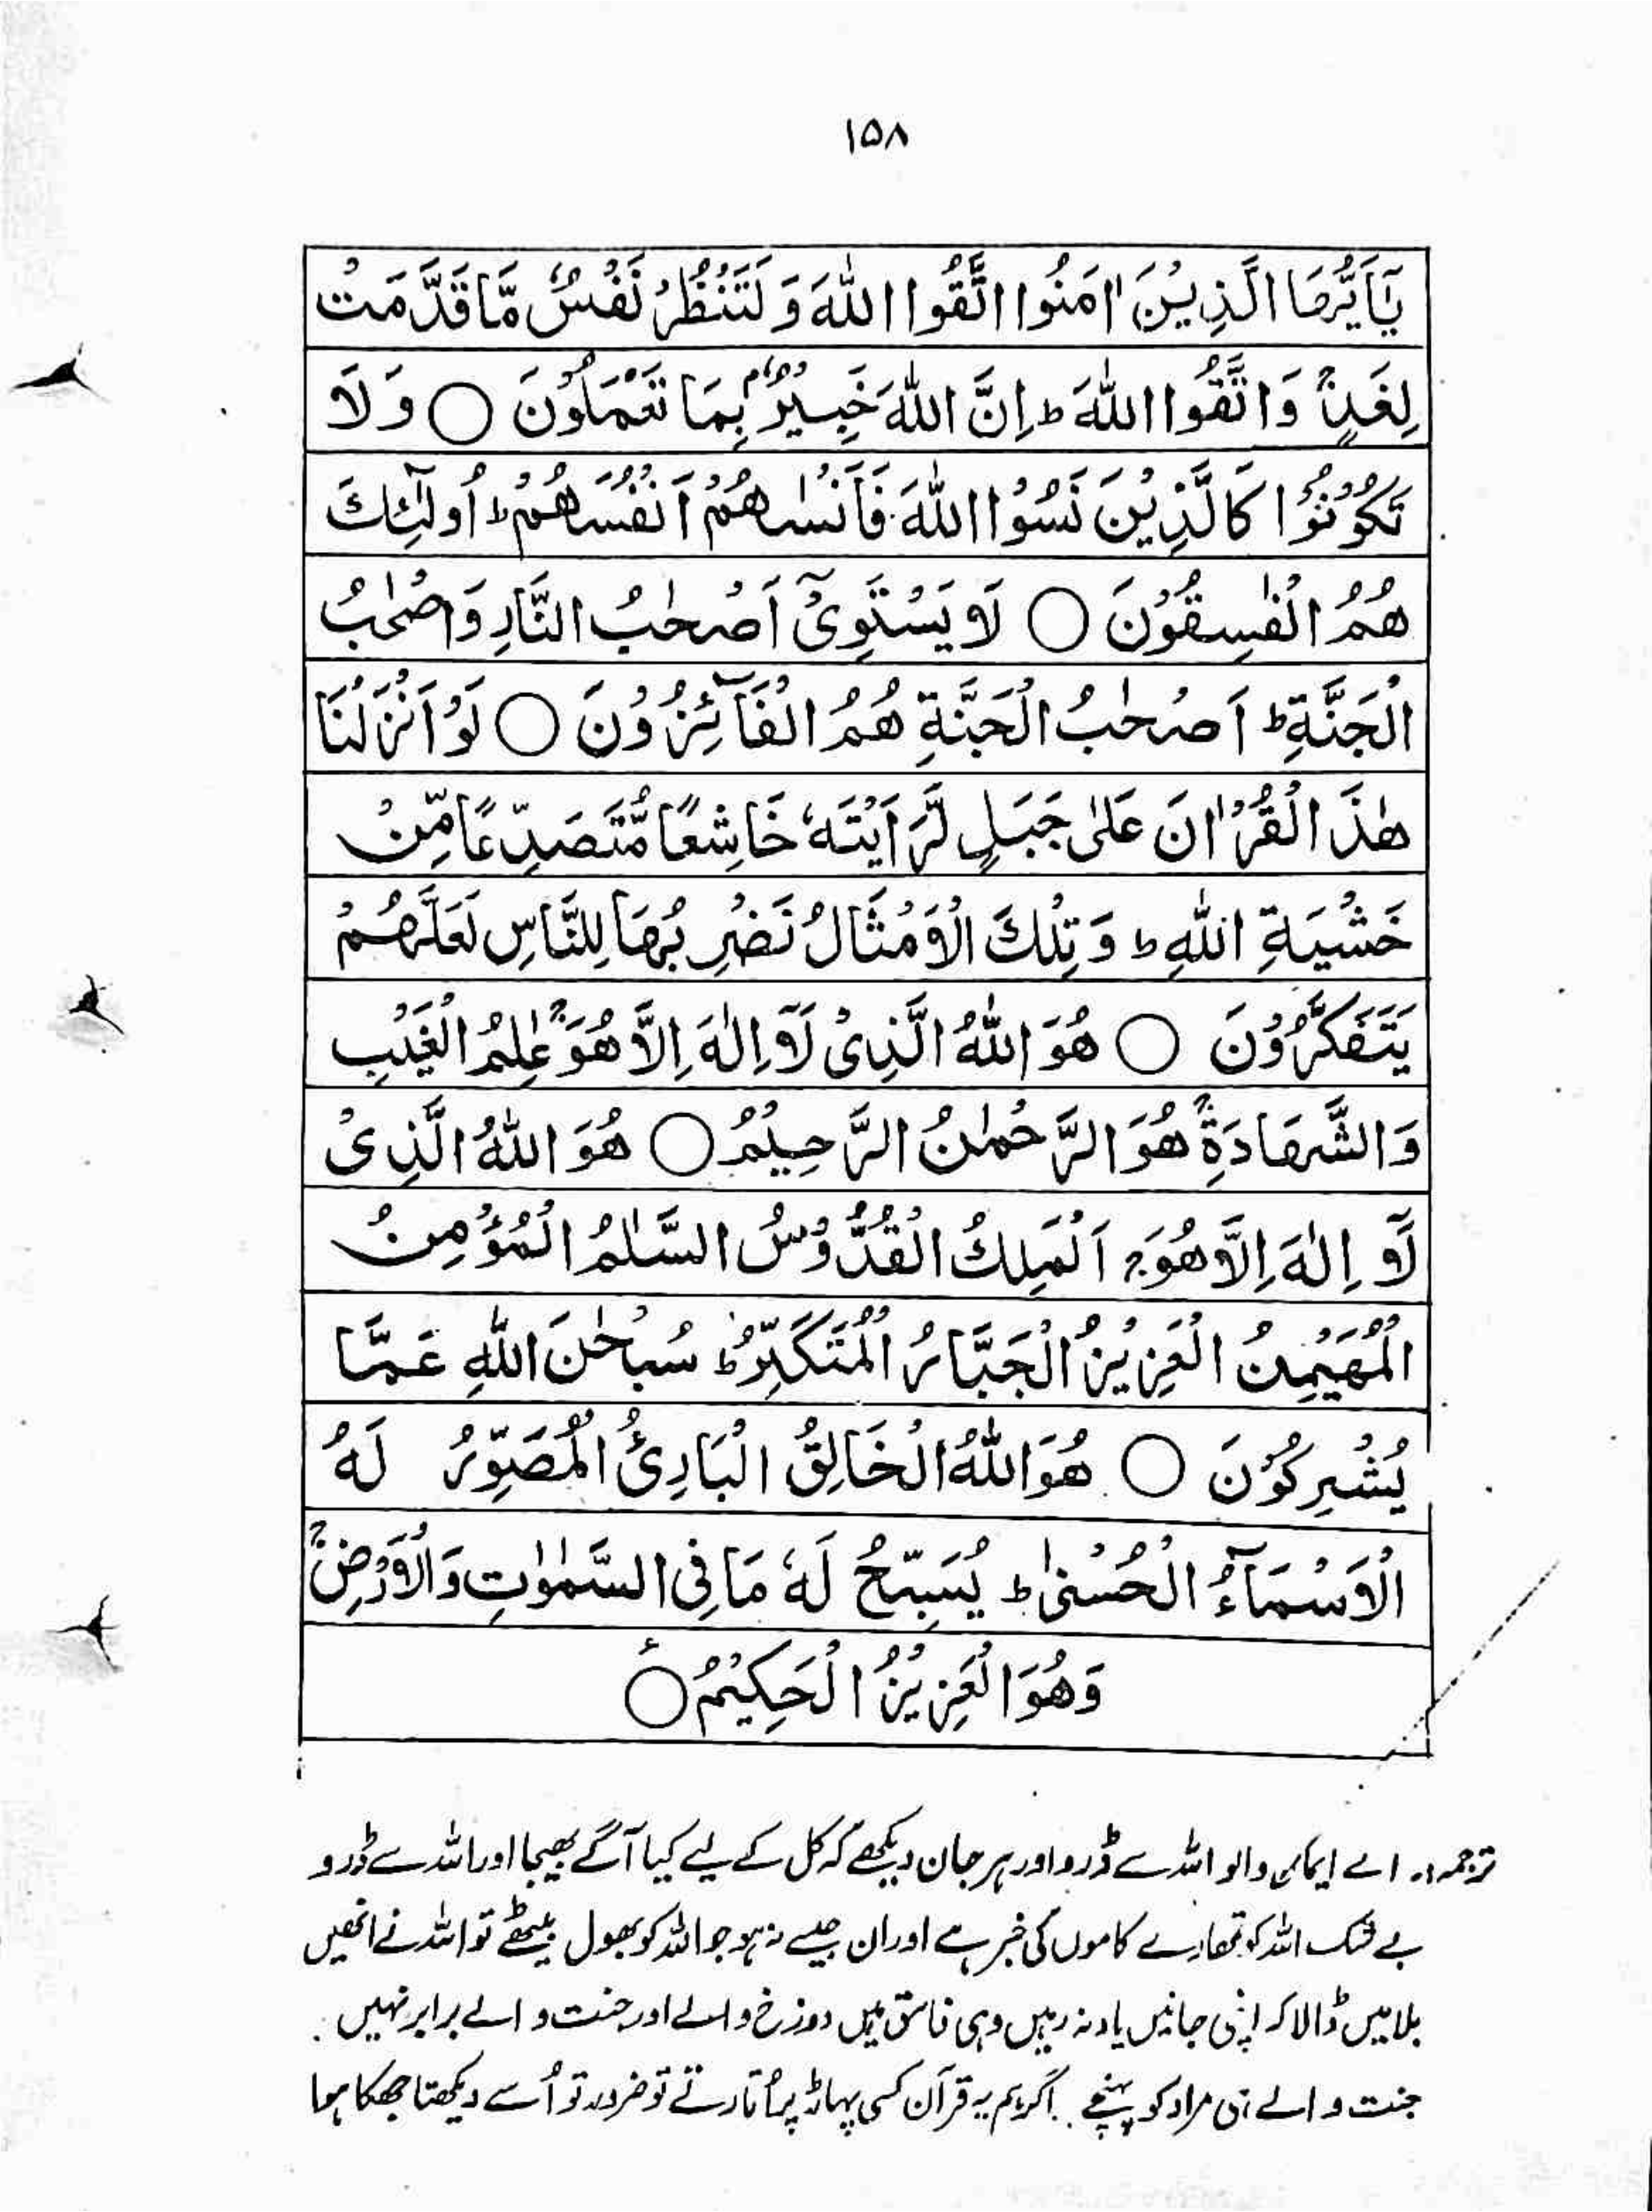 ۱۵۸
يٰٓاَيُّهَا الَّذِيْنَ اٰمَنُوا اتَّقُوا اللّٰهَ وَلْتَنْظُرْ نَفْسٌ مَّا قَدَّمَتْ
لِغَدٍ ۚ وَاتَّقُوا اللّٰهَ ؕ اِنَّ اللّٰهَ خَبِيْرٌۢ بِمَا تَعْمَلُوْنَ ○ وَلَا
تَكُوْنُوْا كَالَّذِيْنَ نَسُوا اللّٰهَ فَاَنْسٰىهُمْ اَنْفُسَهُمْ ؕ اُولٰٓئِكَ
هُمُ الْفٰسِقُوْنَ ○ لَا يَسْتَوِيْٓ اَصْحٰبُ النَّارِ وَاَصْحٰبُ
الْجَنَّةِ ؕ اَصْحٰبُ الْجَنَّةِ هُمُ الْفَآئِزُوْنَ ○ لَوْ اَنْزَلْنَا
هٰذَا الْقُرْاٰنَ عَلٰى جَبَلٍ لَّرَاَيْتَهٗ خَاشِعًا مُّتَصَدِّعًا مِّنْ
خَشْيَةِ اللّٰهِ ؕ وَتِلْكَ الْاَمْثَالُ نَضْرِبُهَا لِلنَّاسِ لَعَلَّهُمْ
يَتَفَكَّرُوْنَ ○ هُوَ اللّٰهُ الَّذِيْ لَآ اِلٰهَ اِلَّا هُوَ ۚ عٰلِمُ الْغَيْبِ
وَالشَّهَادَةِ ۚ هُوَ الرَّحْمٰنُ الرَّحِيْمُ ○ هُوَ اللّٰهُ الَّذِيْ
لَآ اِلٰهَ اِلَّا هُوَ ۚ اَلْمَلِكُ الْقُدُّوْسُ السَّلٰمُ الْمُؤْمِنُ
الْمُهَيْمِنُ الْعَزِيْزُ الْجَبَّارُ الْمُتَكَبِّرُ ؕ سُبْحٰنَ اللّٰهِ عَمَّا
يُشْرِكُوْنَ ○ هُوَ اللّٰهُ الْخَالِقُ الْبَارِئُ الْمُصَوِّرُ لَهُ
الْاَسْمَآءُ الْحُسْنٰى ؕ يُسَبِّحُ لَهٗ مَا فِي السَّمٰوٰتِ وَالْاَرْضِ ۚ
وَهُوَ الْعَزِيْزُ الْحَكِيْمُ ○ ۧ
ترجمہ:۔ اے ایمان والو اللہ سے ڈرو اور ہر جان دیکھے کہ کل کے لیے کیا آگے بھیجا اور اللہ سے ڈرو
بے شک اللہ کو تمھارے کاموں کی خبر ہے اور ان جیسے نہ ہو جو اللہ کو بھول بیٹھے تو اللہ نے انھیں
بلا میں ڈالا کہ اپنی جانیں یاد نہ رہیں وہی فاسق ہیں دوزخ والے اور جنت والے برابر نہیں۔
جنت والے ہی مراد کو پہنچے۔ اگر ہم یہ قرآن کسی پہاڑ پر اُتارتے تو ضرور تو اُسے دیکھتا جھکا ہوا